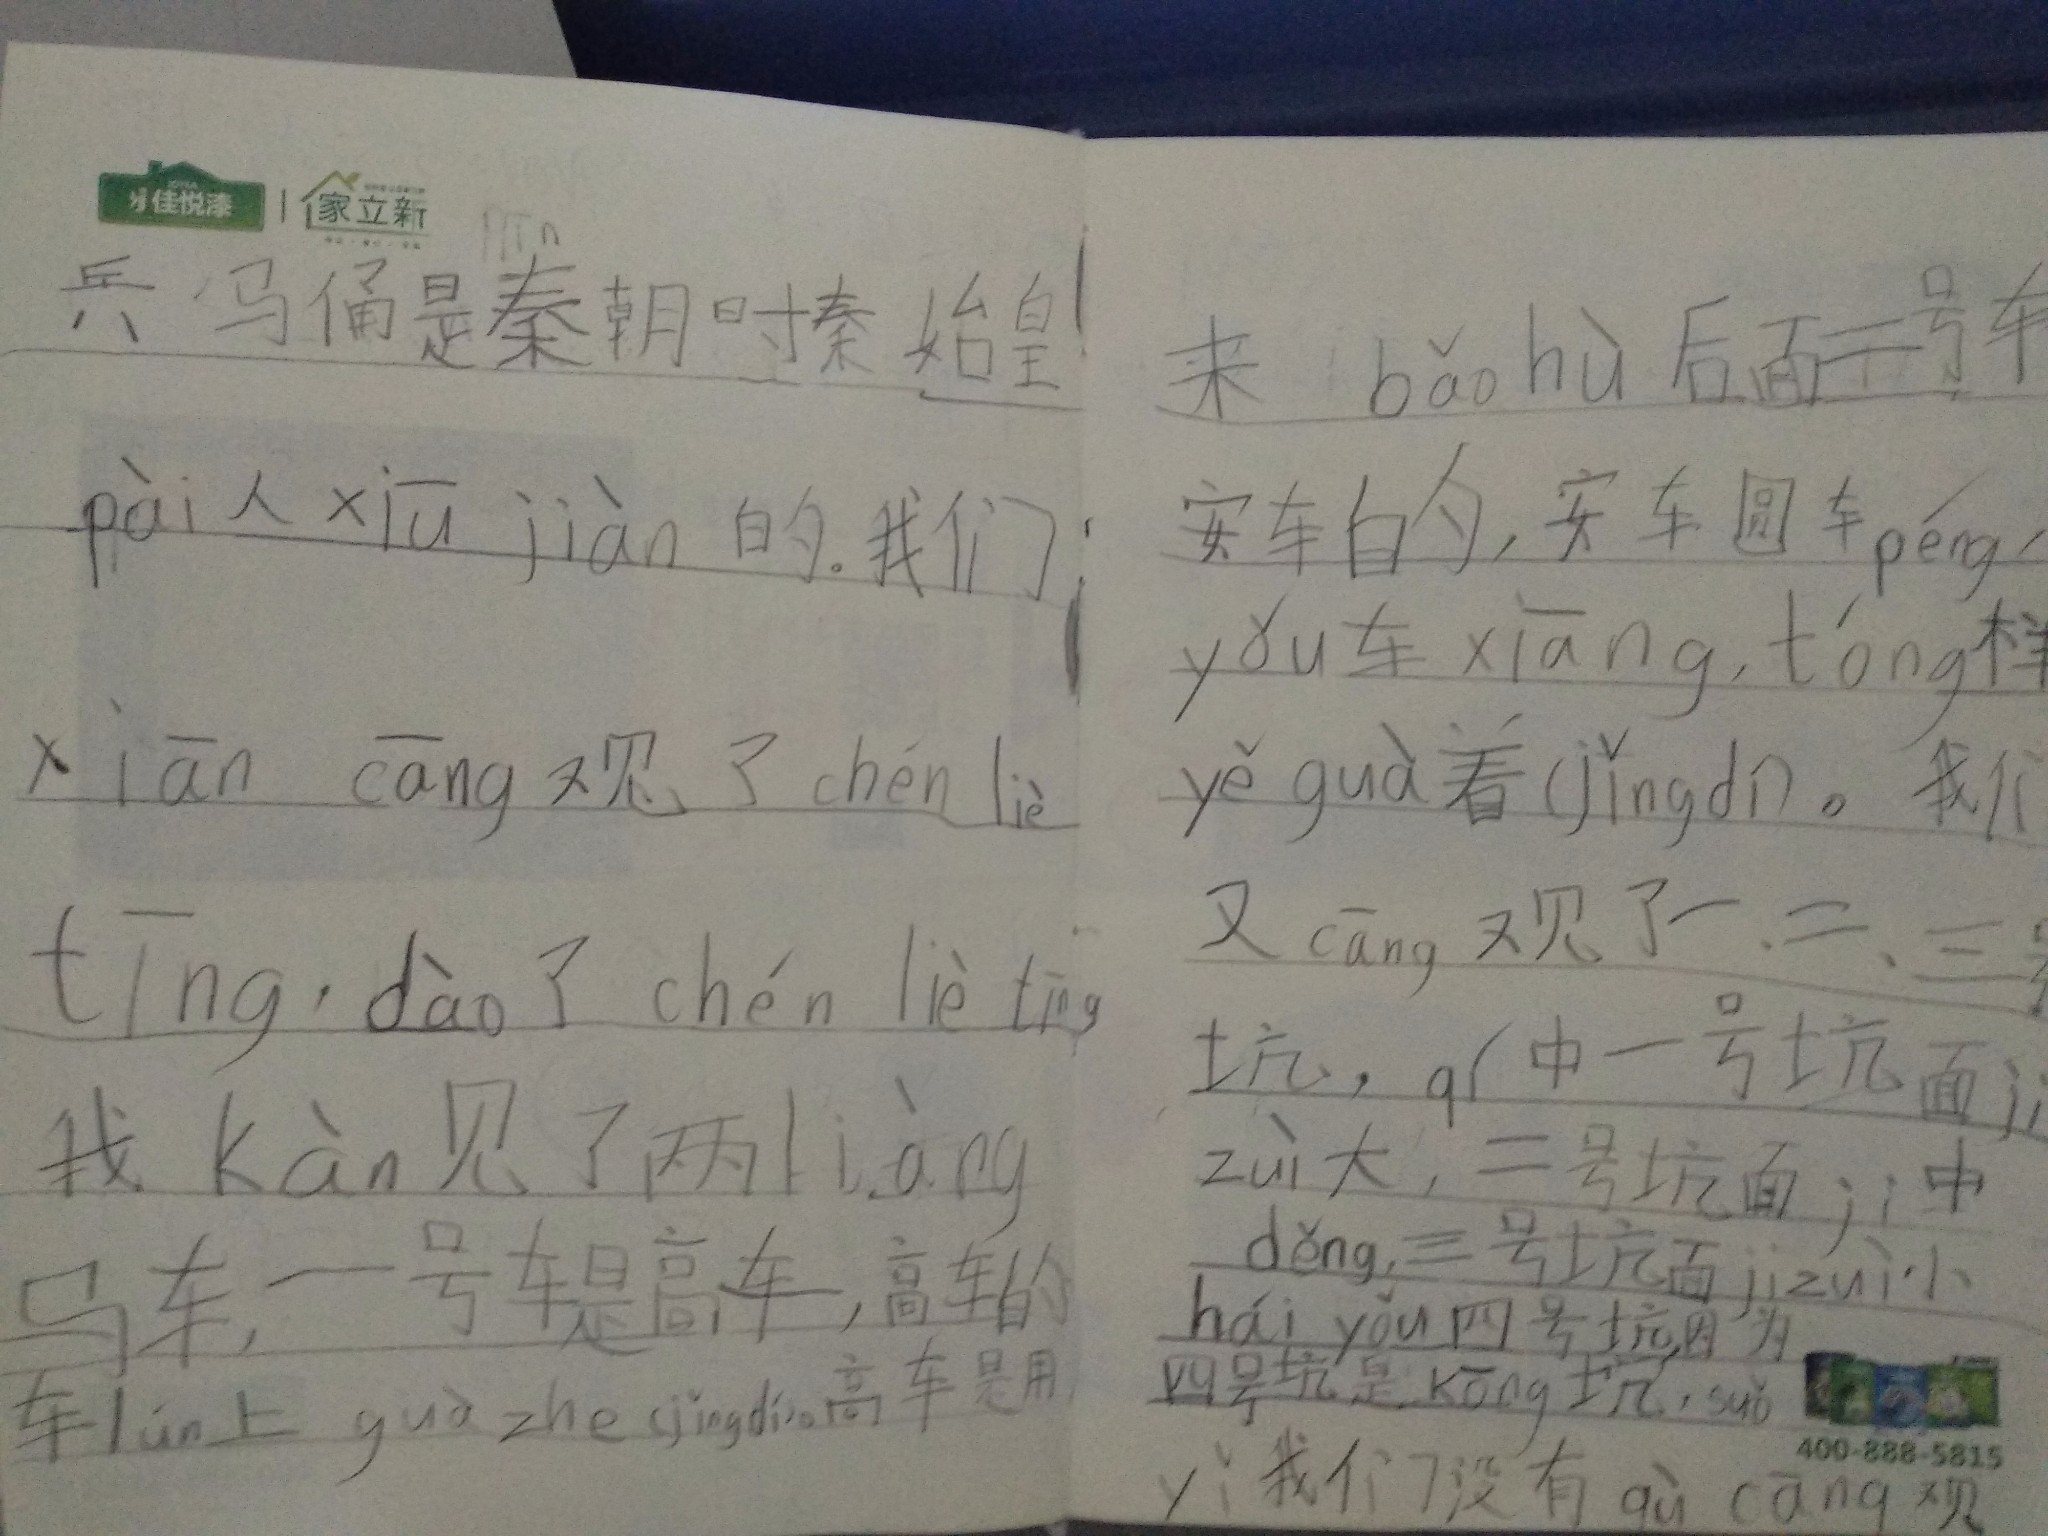 佳悦漆 | 家立新
兵马俑是秦朝时秦始皇
pài人xiū jiàn的.我们
xiān cāng观了chén liè
tīng,dào了chén liè tīng
我kàn见了两liàng
马车,一号车是高车,高车的
车lún上guà zhe(jǐngdí)。高车是用
来bǎohù后面二号车
安车的,安车圆车péng,
yǒu车xiāng,tóng样
yě guà着(jǐngdí)。我们
又cāng观了一、二、三号
坑,qí中一号坑面ji
zuì大,二号坑面ji中
děng,三号坑面jizuì小
hái yǒu四号坑因为
四号坑是kōng坑,suǒ
yǐ我们没有qù cāng观
400-888-5815